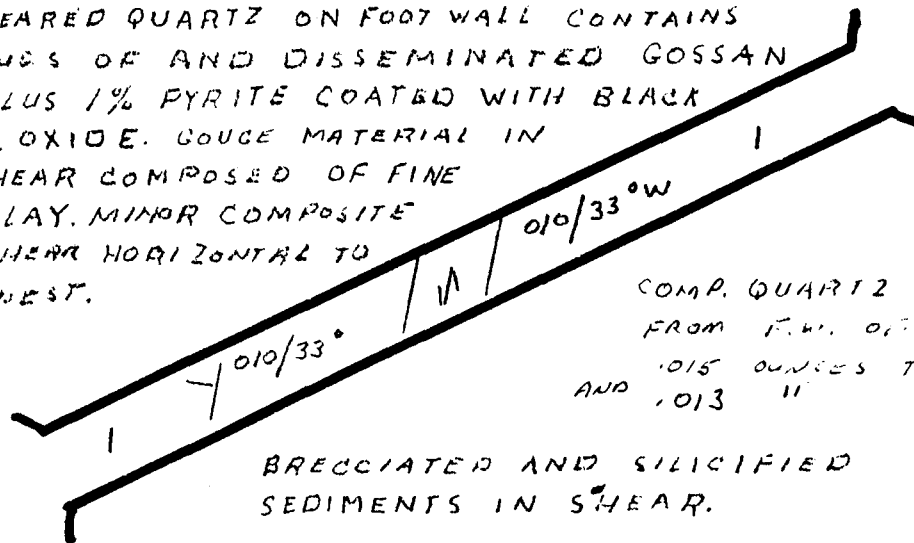 EARED QUARTZ ON FOOT WALL CONTAINS
OF AND DISSEMINATED GOSSAN
LUS 1% PYRITE COATED WITH BLACK
OXIDE. GOUGE MATERIAL IN
HEAR COMPOSED OF FINE
LAY. MINOR COMPOSITE
HEAR HORIZONTAL TO
WEST.
010/33°W
010/33°
COMP. QUARTZ
FROM F.W. OF
.015 OUNCES T
AND .013 "
BRECCIATED AND SILICIFIED
SEDIMENTS IN SHEAR.